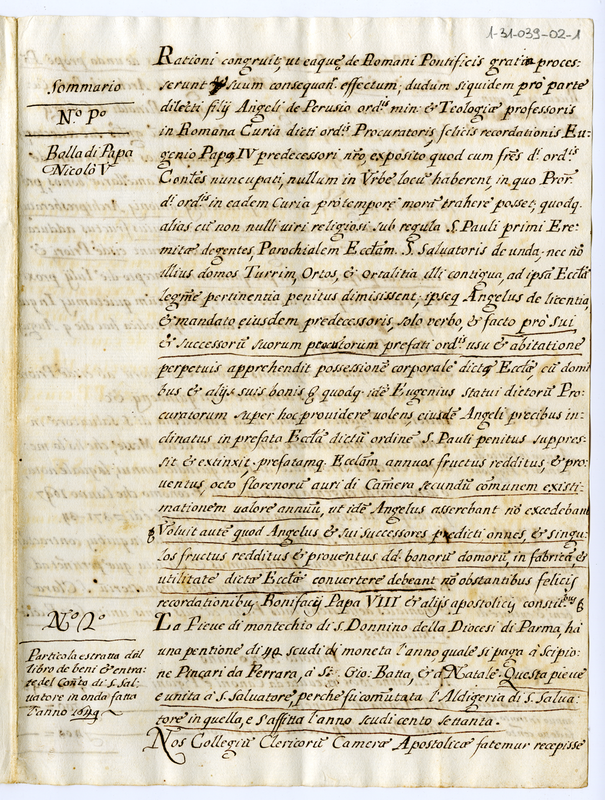 1-31-039-02-1
Sommario
N.º P.º
Bolla di Papa
Nicolò V
Rationi congruit, ut eaque de Romani Pontificis gratia proces:
serunt suum consequan. effectum; dudum siquidem pro parte
dilecti filij Angeli de Perusio ord.is min. & Teologiæ professoris
in Romana Curia dicti ord.is Procuratoris, felicis recordationis Eu-
genio Papæ IV predecessori nro, exposito quod cum frẽs d.i ord.is
Contẽs nuncupati, nullum in Vrbe locũ haberent, in quo Pror.
d.i ord.is in eadem Curia pro tempore morã trahere posset; quodq.
alias cũ non nulli viri religiosi sub regula S. Pauli primi Ere-
mitæ degentes, Parochialem Ecclam. S. Salvatoris de unda, nec nõ
illius domos Turrim, Ortos, & ortalitia illi contigua, ad ipsã Ecclã
legmẽ pertinentia penitus dimisissent; ipseq Angelus de licentia,
& mandato eiusdem predecessoris, solo verbo, & facto pro sui
& successorũ suorum procutorum prefati ord.is usu & abitatione
perpetuis apprehendit possesionẽ corporalẽ dictæ Ecclæ cũ domi
bus & alijs suis bonis quodq. idẽ Eugenius statui dictorũ Pro-
curatorum super hoc providere volens, eiusdẽ Angeli precibus in-
clinatus in prefata Ecclã dictũ ordinẽ S. Pauli penitus suppres-
sit & extinxit. prefatamq. Ecclam, annuos fructus redditus, & pro-
ventus, octo florenorũ auri di Camera secundũ comunem existi-
mationem valorẽ annuũ, ut idẽ Angelus asserebant nõ excedebant
Voluit autẽ quod Angelus & sui successores predicti onnes, & singu-
los fructus redditus & proventus dd. bonorũ domorũ, in fabricã &
utilitatẽ dictæ Ecclæ convertere debeant nõ obstantibus felicis
recordationibus Bonifacij Papa VIII & alijs apostolicij constit.bus
N.º 2.º
Particola estratta dal
libro de beni & entra-
te del Con.to di S. Sal-
vatore in onda fatta
l'anno 1649
La Pieve di montechio di S. Donnino della Diocesi di Parma, hà
una pentione di 42 scudi di moneta l'anno quale si paga à Scipio-
ne Pincari da Ferrara, à S. Gio: Batta, & à Natale. Questa pieve
e unita à S. Salvatore, perche fù comutata l'Aldigeria di S. Salva-
tore in quella, e s'affitta l'anno scudi cento settanta.
Nos Collegiũ Clericorũ Cameræ Apostolicæ fatemur recepisse